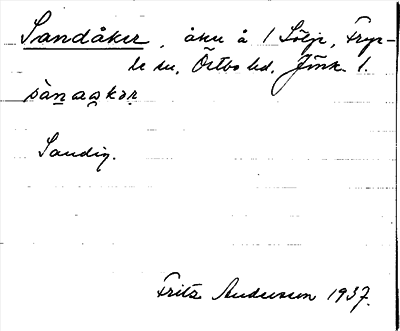 Sandåker, åker å 1 Sölje, Frye-
le sn, Östbo hd. Jönk. l.
sànaakər
Sandig.
Fritz Andersson 1937.